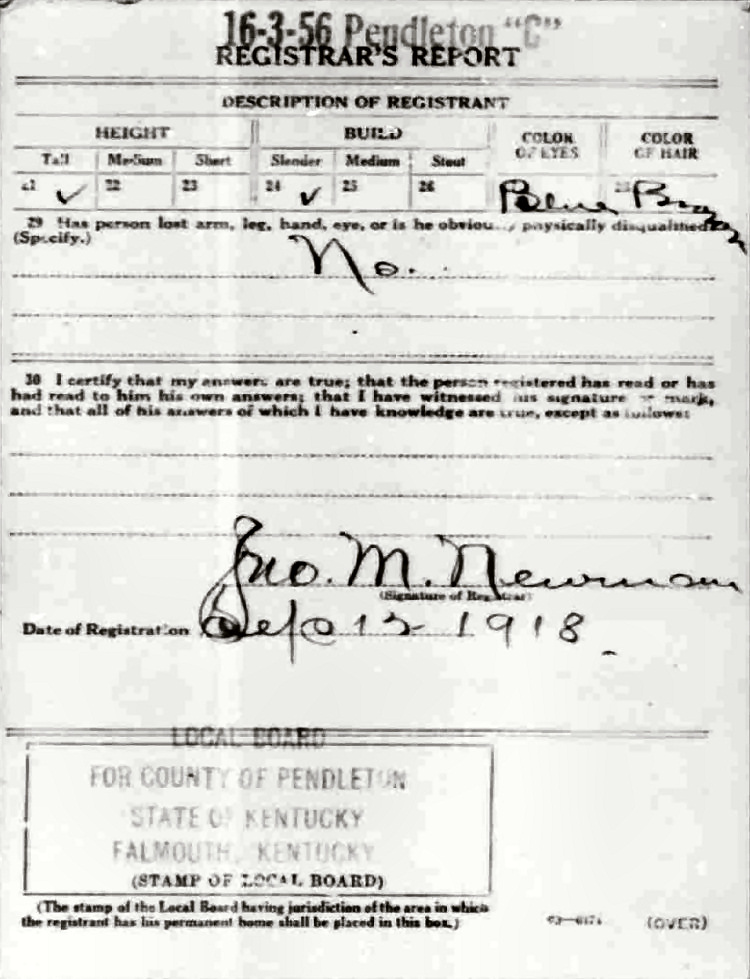 16-3-56 Pendleton "C"
REGISTRAR'S REPORT
DESCRIPTION OF REGISTRANT
HEIGHT BUILD COLOR OF EYES COLOR OF HAIR
Tall Medium Short Slender Medium Stout
21 ✓ 22 23 24 ✓ 25 26 Blue Brown
29 Has person lost arm, leg, hand, eye, or is he obviously physically disqualified?
(Specify.)
No.
30 I certify that my answers are true; that the person registered has read or has
had read to him his own answers; that I have witnessed his signature or mark,
and that all of his answers of which I have knowledge are true, except as follows:
Jno. M. Newman
(Signature of Registrar)
Date of Registration Sep 12 1918
LOCAL BOARD
FOR COUNTY OF PENDLETON
STATE OF KENTUCKY
FALMOUTH, KENTUCKY
(STAMP OF LOCAL BOARD)
(The stamp of the Local Board having jurisdiction of the area in which
the registrant has his permanent home shall be placed in this box.)
(OVER)